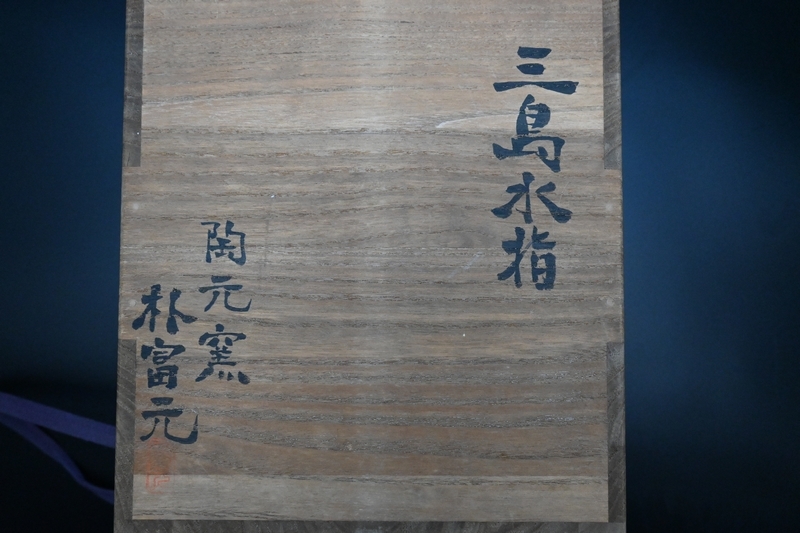 三島水指
陶元窯
朴富元